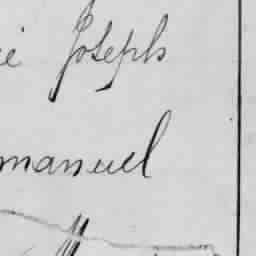 ie Joseph
manuel